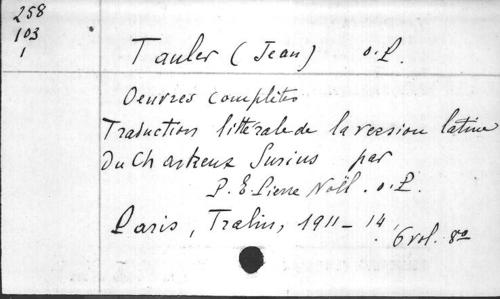 258
103
1
Tauler (Jean) o.P.
Oeuvres complètes
Traduction littérale de la version latine
Du Chartreux Surius par
P. E. Pierre Noël. o.P.
Paris, Tralin, 1911-14,
6 vol. 8º